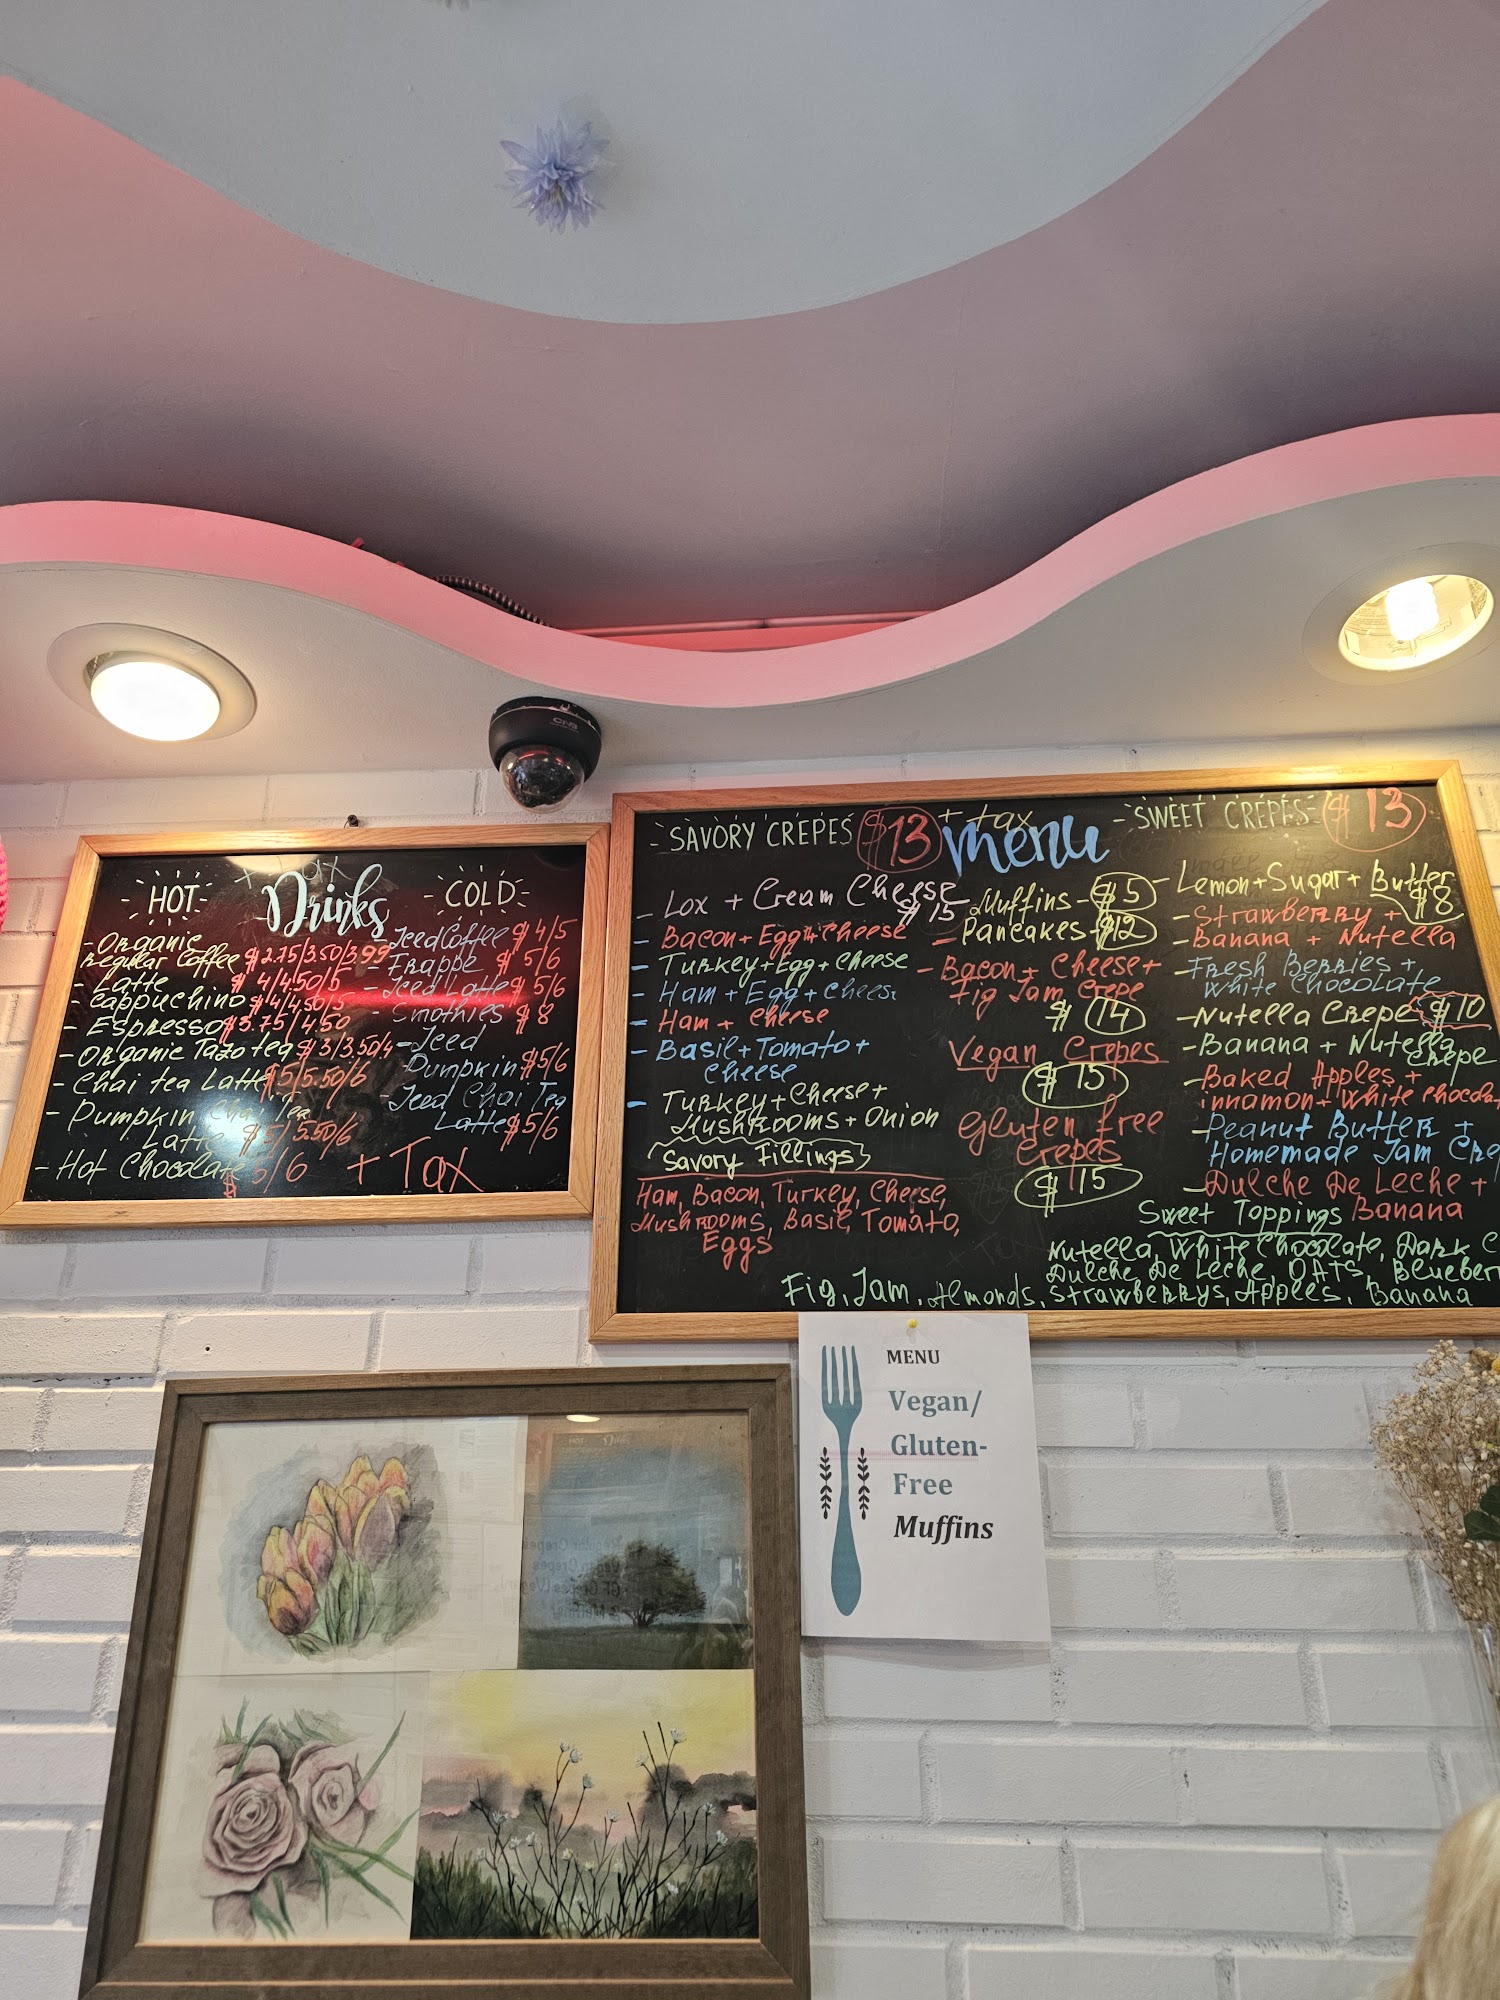 + tax
HOT
Drinks
COLD
- Organic
Regular Coffee $2.75/3.50/3.99
- Latte $4/4.50/5
- Cappuchino $4/4.50/5
- Espresso $3.75/4.50
- Organic Tazo tea $3/3.50/4
- Chai tea Latte $5/5.50/6
- Pumpkin Chai Tea
Latte $5/5.50/6
- Hot Chocolate $5/6
Iced Coffee $4/5
- Frappe $5/6
- Iced Latte $5/6
- Smothies $8
- Iced
Pumpkin $5/6
- Iced Chai Tea
Latte $5/6
+ Tax
- SAVORY CREPES $13
+ tax
menu
- Lox + Cream Cheese
$15
- Bacon + Egg + Cheese
- Turkey + Egg + Cheese
- Ham + Egg + Cheese
- Ham + Cheese
- Basil + Tomato +
Cheese
- Turkey + Cheese +
Mushrooms + Onion
Savory Fillings
Ham, Bacon, Turkey, Cheese,
Mushrooms, Basil, Tomato,
Eggs
Muffins - $5
Pancakes - $12
- Bacon + Cheese +
Fig Jam Crepe
$14
Vegan Crepes
$15
Gluten free
Crepes
$15
- SWEET CREPES - $13
- Lemon + Sugar + Butter
$8
- Strawberry +
- Banana + Nutella
- Fresh Berries +
White Chocolate
- Nutella Crepe $10
- Banana + Nutella
Crepe
- Baked Apples +
innamon + White Chocol
- Peanut Butter +
Homemade Jam Cre
- Dulche De Leche +
Banana
Sweet Toppings
Nutella, White Chocolate, Dark C
Dulche De Leche, OATS, Blueber
Fig, Jam, Almonds, Strawberrys, Apples, Banana
CNB
MENU
Vegan/
Gluten-
Free
Muffins